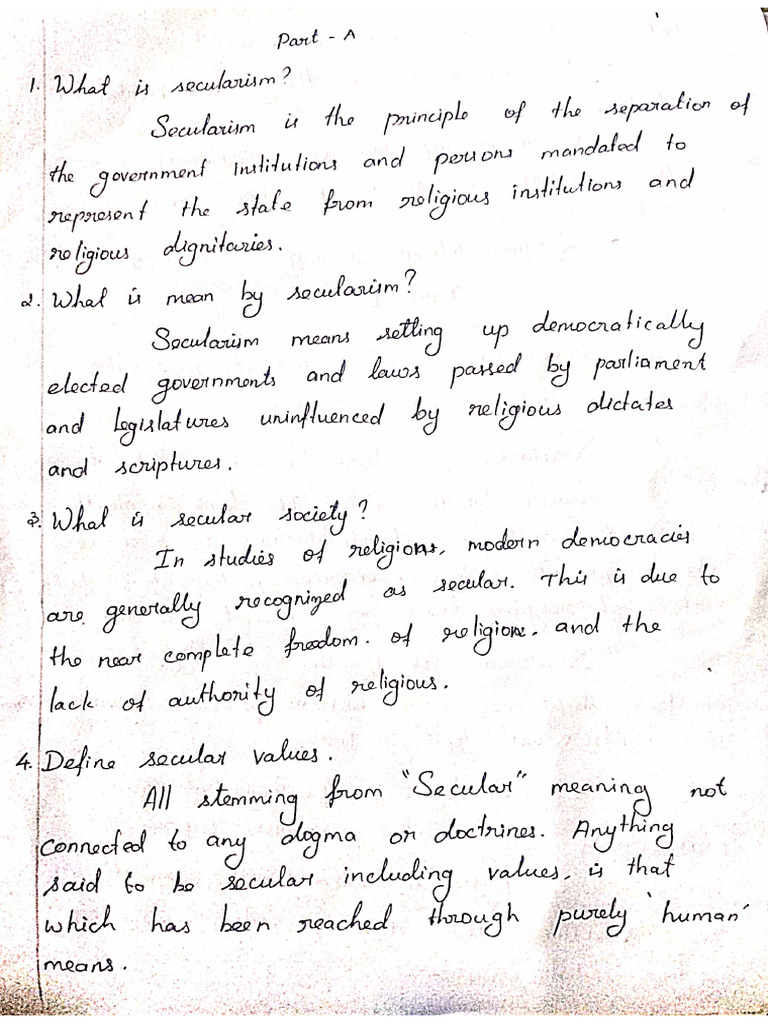 Part - A
1. What is secularism?
Secularism is the principle of the separation of
the government institutions and persons mandated to
represent the state from religious institutions and
religious dignitaries.
2. What is mean by secularism?
Secularism means setting up democratically
elected governments and laws passed by parliament
and legislatures uninfluenced by religious dictates
and scriptures.
3. What is secular society?
In studies of religions, modern democracies
are generally recognized as secular. This is due to
the near complete freedom. of religion. and the
lack of authority of religious.
4. Define secular values.
All stemming from "Secular" meaning not
connected to any dogma or doctrines. Anything
said to be secular including values, is that
which has been reached through purely 'human'
means.